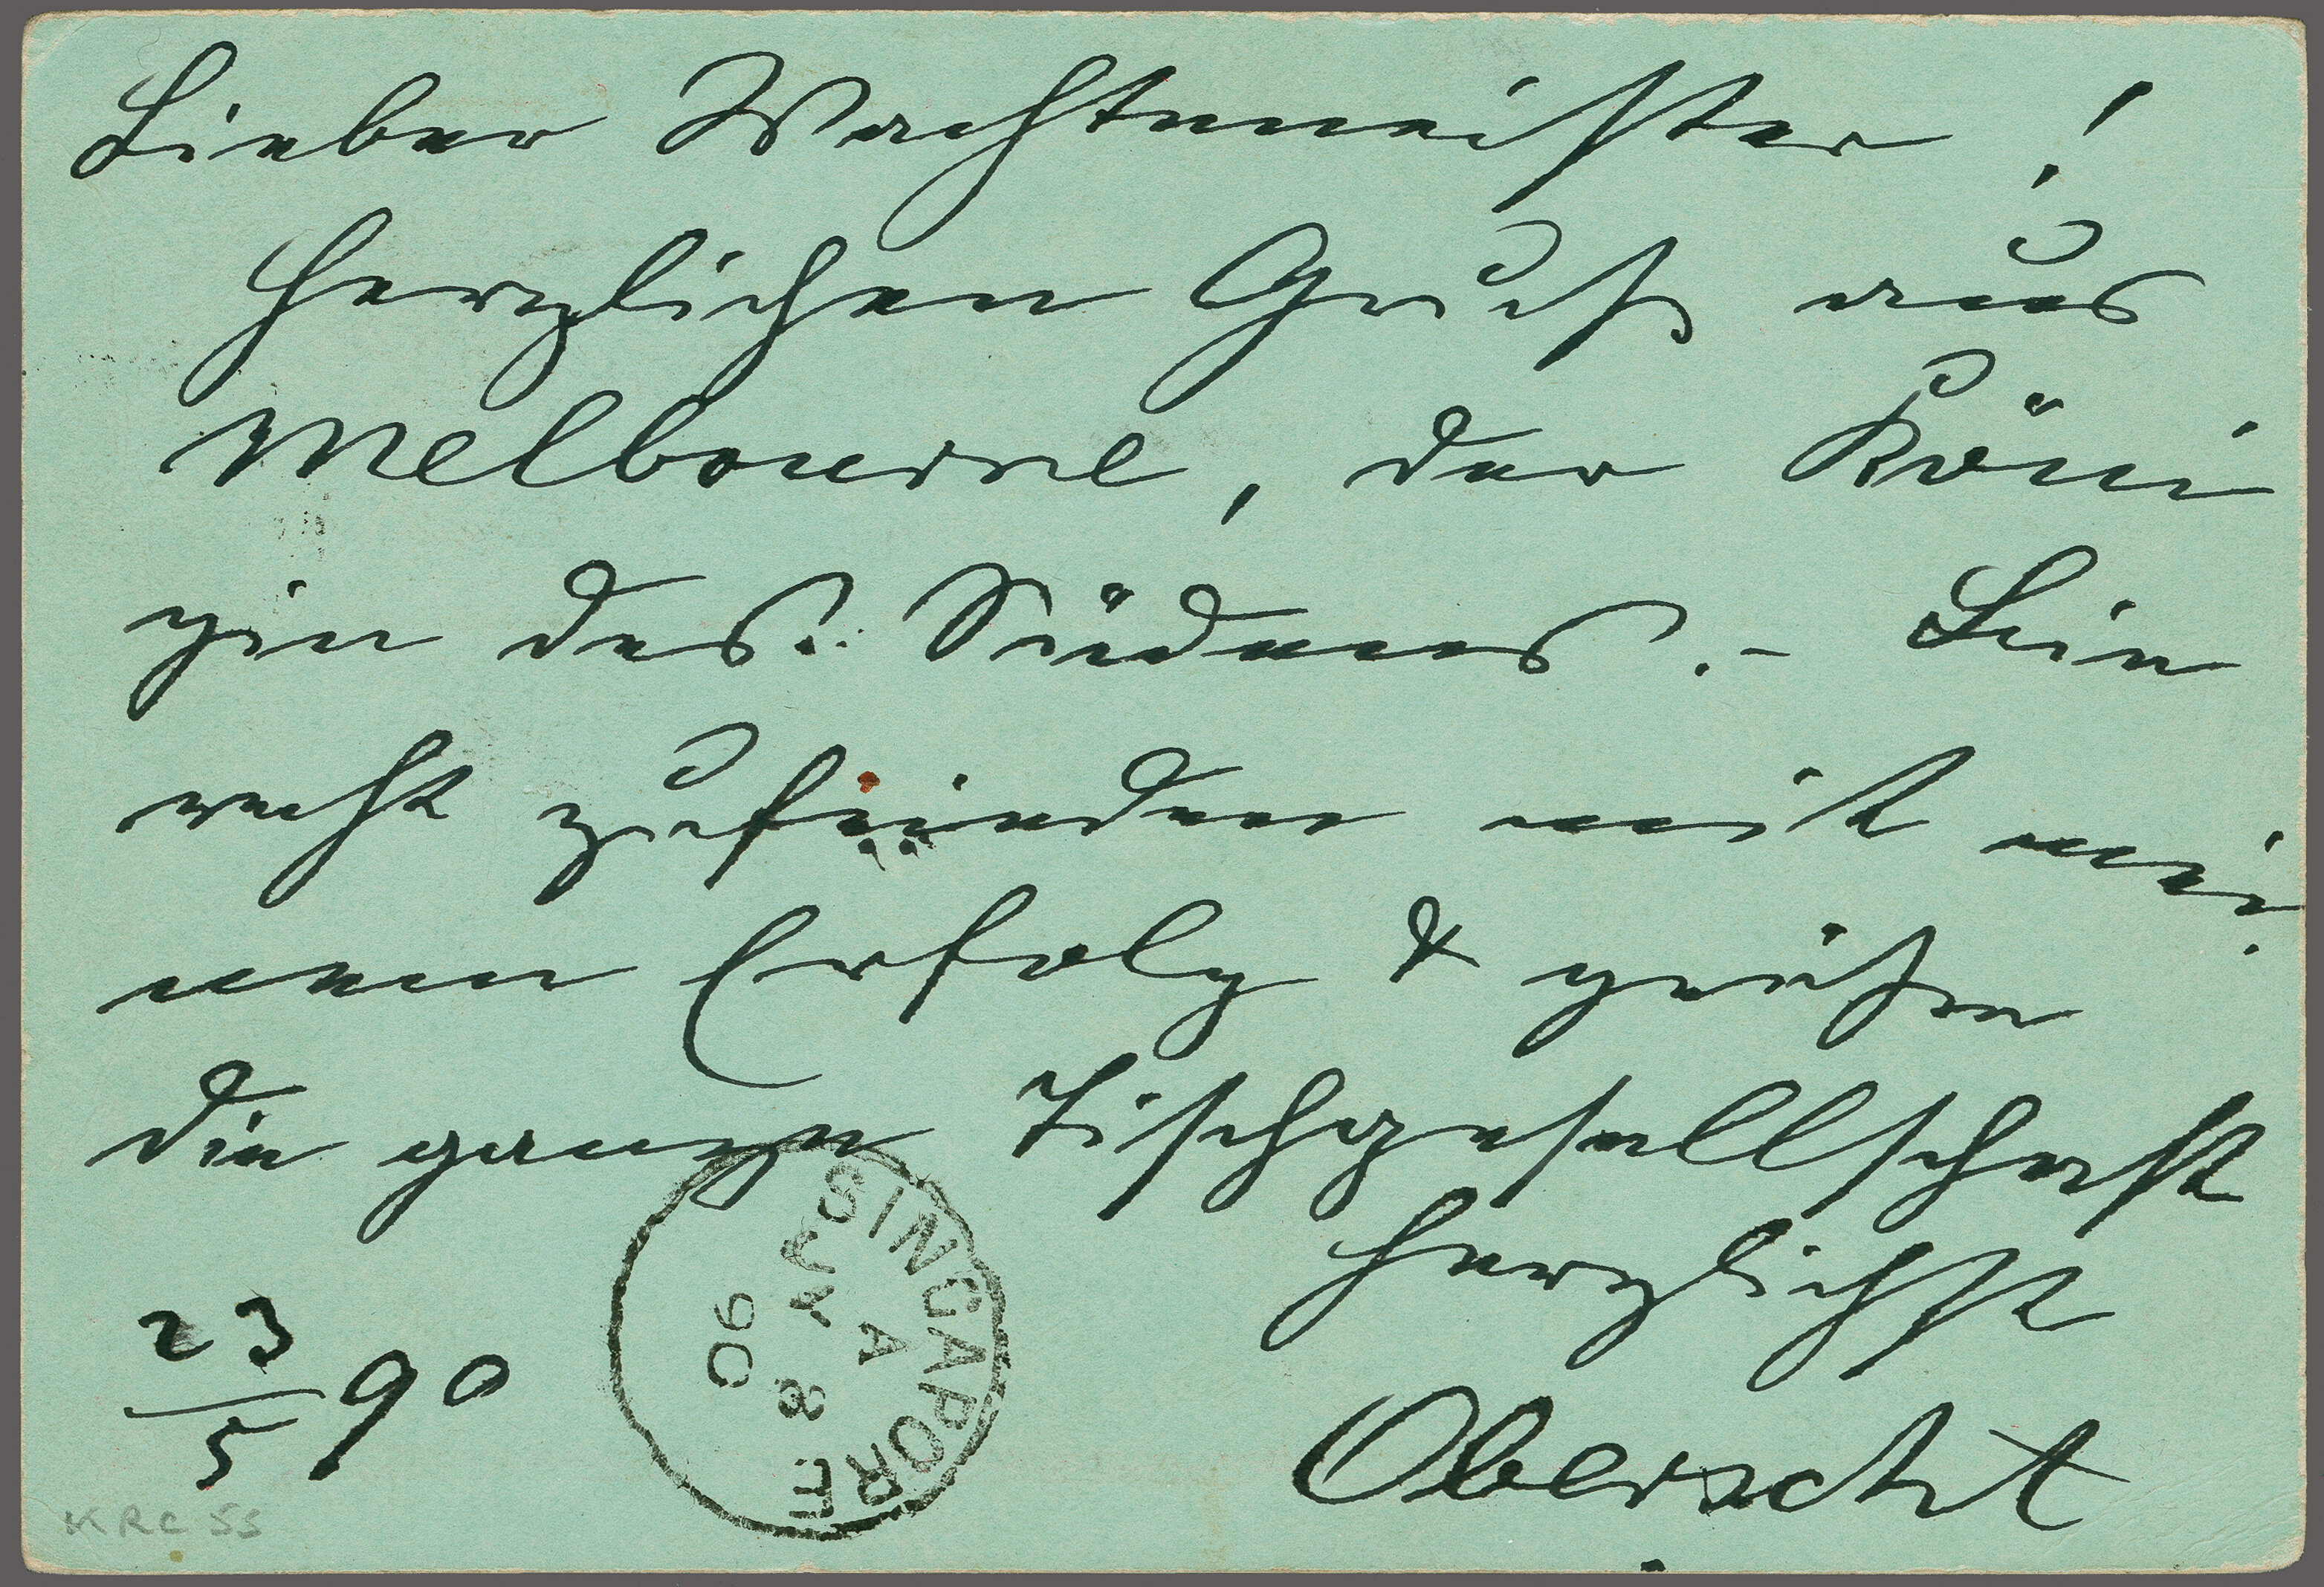 Lieber Wachtmeister!
Herzlichen Gruß aus
Melbourne, der Köni
gin des Südens. – Bin
recht zufrieden mit mei
nem Erfolg & grüße
die ganze Tischgesellschaft
herzlichst
23/5 90
SINGAPORE
A
JY 8
90
KRC 55